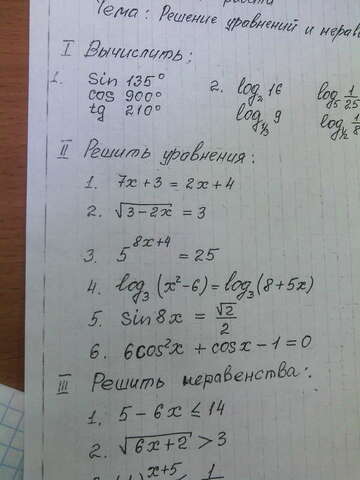 работа
Тема: Решение уравнений и нерав
I Вычислить:
1. sin 135°
cos 900°
tg 210°
2. log₂ 16
log₁/₃ 9
log₅ 1/25
log₁/₂ 1/8
II Решить уравнения:
1. 7x + 3 = 2x + 4
2. √(3 - 2x) = 3
3. 5^(8x+4) = 25
4. log₃ (x² - 6) = log₃ (8 + 5x)
5. sin 8x = √2/2
6. 6cos²x + cosx - 1 = 0
III Решить неравенства:
1. 5 - 6x ≤ 14
2. √(6x + 2) > 3
x+5 1